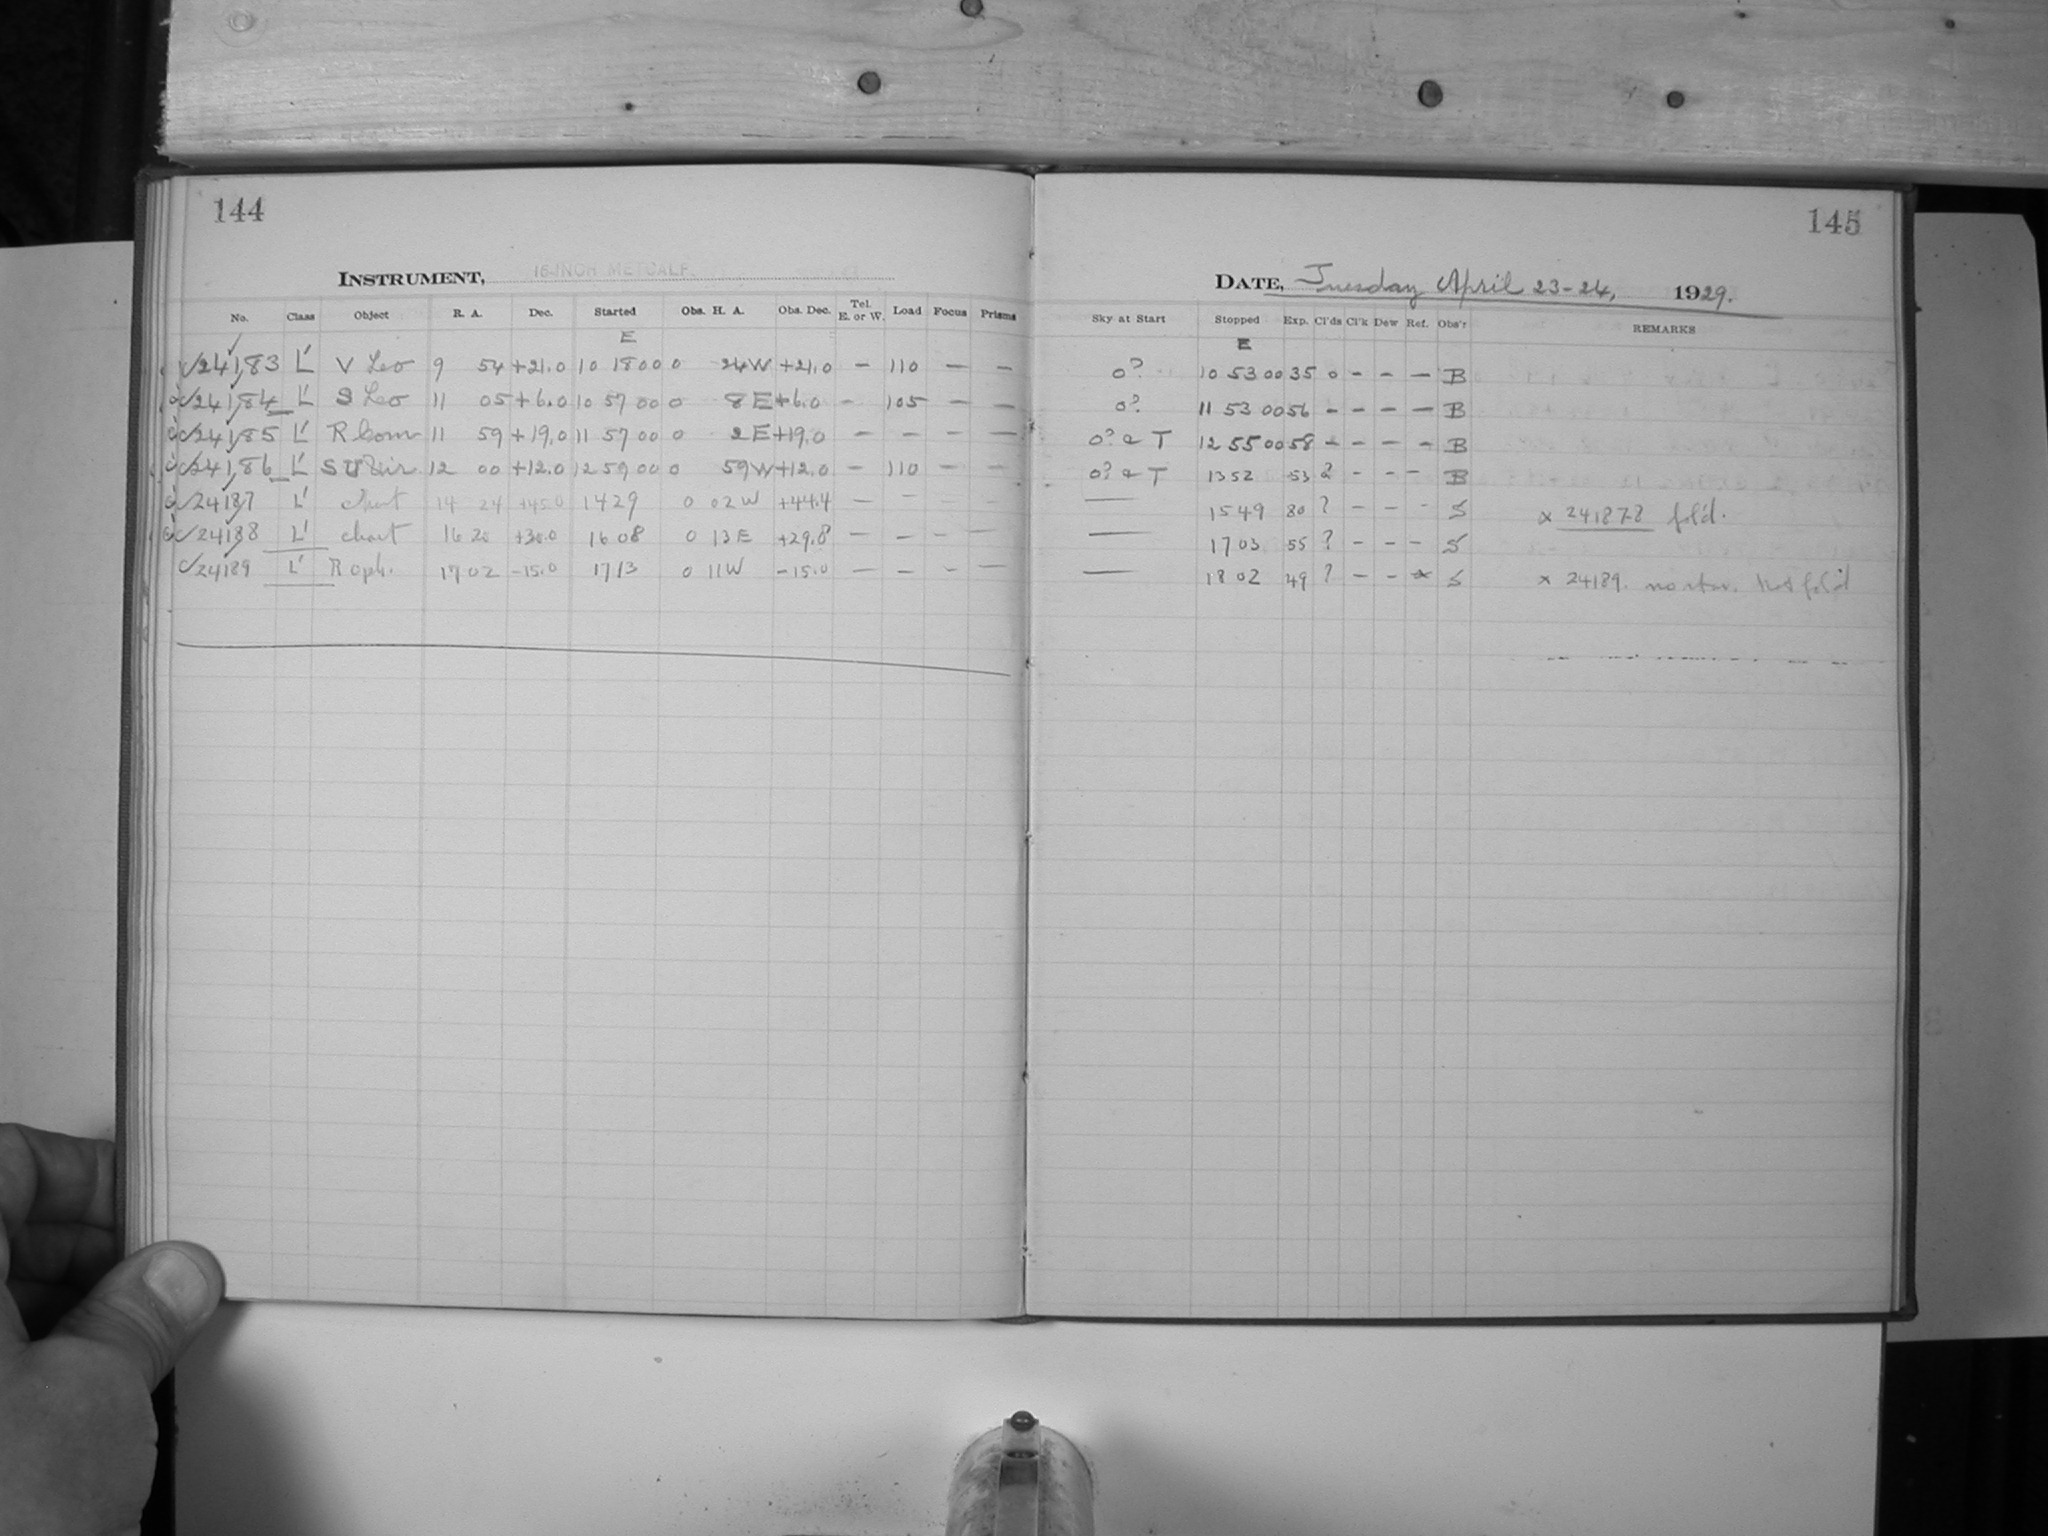 144
INSTRUMENT, 16-INCH METCALF.
No. Class Object R. A. Dec. Started Obs. H. A. Obs. Dec. Tel. E. or W. Load Focus Prisms
E
24183 L' V Leo 9 54 +21.0 10 18 00 0 24 W +21.0 – 110 – –
24184 L' S Leo 11 05 +6.0 10 57 00 0 8 E +6.0 – 105 – –
24185 L' R Com 11 59 +19.0 11 57 00 0 2 E +19.0 – – – –
24186 L' SU Vir 12 00 +12.0 12 59 00 0 59 W +12.0 – 110 – –
24187 L' chart 14 24 +45.0 14 29 0 02 W +44.4 – – –
24188 L' chart 16 20 +30.0 16 08 0 13 E +29.8 – – – –
24189 L' R oph. 17 02 -15.0 17 13 0 11 W -15.0 – – – –
145
DATE, Tuesday April 23-24, 1929.
Sky at Start Stopped Exp. Cl'ds Cl'k Dew Ref. Obs'r REMARKS
E
0? 10 53 00 35 0 – – – B
0? 11 53 00 56 – – – – B
0? & T 12 55 00 58 – – – – B
0? & T 13 52 53 2 – – – B
— 15 49 80 ? – – - S x 24187-8 fol'd.
— 17 03 55 ? – – – S
— 18 02 49 ? – – * S x 24189. no star. Not fol'd